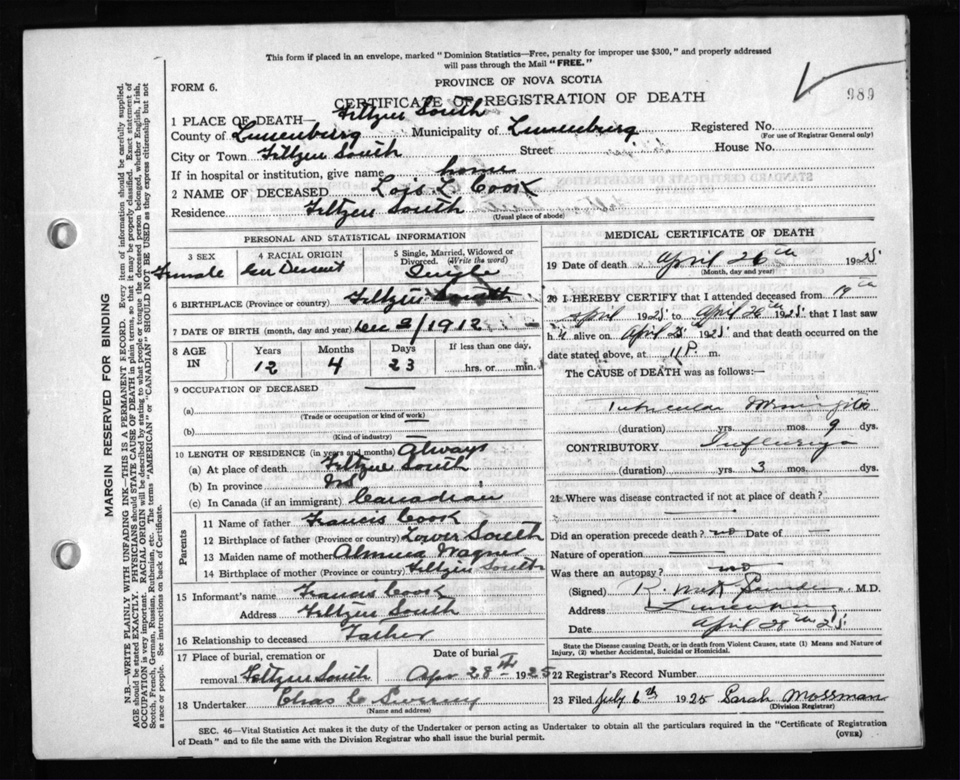 This form if placed in an envelope, marked "Dominion Statistics—Free, penalty for improper use $300," and properly addressed
will pass through the Mail "FREE."
FORM 6.
PROVINCE OF NOVA SCOTIA
989
CERTIFICATE OF REGISTRATION OF DEATH
1 PLACE OF DEATH— Feltzen South
County of Lunenburg Municipality of Lunenburg Registered No.
(For use of Registrar General only)
City or Town Feltzen South Street House No.
If in hospital or institution, give name home
2 NAME OF DECEASED Lois L Cook
Residence Feltzen South
(Usual place of abode)
PERSONAL AND STATISTICAL INFORMATION
3 SEX Female
4 RACIAL ORIGIN Ger Descent
5 Single, Married, Widowed or
Divorced. (Write the word)
Single
6 BIRTHPLACE (Province or country) Feltzen South
7 DATE OF BIRTH (month, day and year) Dec 3/1912
8 AGE IN Years 12 Months 4 Days 23
If less than one day,
hrs. or min.
9 OCCUPATION OF DECEASED
(a)
(Trade or occupation or kind of work)
(b)
(Kind of industry)
10 LENGTH OF RESIDENCE (in years and months) Always
(a) At place of death Feltzen South
(b) In province NS
(c) In Canada (if an immigrant) Canadian
Parents
11 Name of father Francis Cook
12 Birthplace of father (Province or country) Lower South
13 Maiden name of mother Wagner
14 Birthplace of mother (Province or country) Feltzen South
15 Informant's name Francis Cook
Address Feltzen South
16 Relationship to deceased Father
17 Place of burial, cremation or
removal Feltzen South
Date of burial
Apr 28th 1925
18 Undertaker Chas
(Name and address)
MEDICAL CERTIFICATE OF DEATH
19 Date of death April 26th 1925
(Month, day and year)
20 I HEREBY CERTIFY that I attended deceased from 19th
April 1925 to April 26th 1925 that I last saw
h alive on April 25 1925 and that death occurred on
date stated above, at 11 P. m.
The CAUSE of DEATH was as follows:—
Tubercular Meningitis
(duration) yrs. mos. 9 dys.
CONTRIBUTORY Influenza
(duration) yrs. 3 mos. dys.
21 Where was disease contracted if not at place of death?
Did an operation precede death? no Date of
Nature of operation
Was there an autopsy? no
(Signed) R. M.D.
Address Lunenburg
Date April 28th 25
State the Disease causing Death, or in death from Violent Causes, state (1) Means and Nature of
Injury, (2) whether Accidental, Suicidal or Homicidal.
22 Registrar's Record Number
23 Filed July 6th 1925 Sarah Mossman
(Division Registrar)
SEC. 46—Vital Statistics Act makes it the duty of the Undertaker or person acting as Undertaker to obtain all the particulars required in the "Certificate of Registration
of Death" and to file the same with the Division Registrar who shall issue the burial permit.
(OVER)
MARGIN RESERVED FOR BINDING
N.B.—WRITE PLAINLY WITH UNFADING INK—THIS IS A PERMANENT RECORD. Every item of information should be carefully supplied.
AGE should be stated EXACTLY. PHYSICIANS should STATE CAUSE OF DEATH in plain terms, so that it may be properly classified. Exact statement of
OCCUPATION is very important. RACIAL ORIGIN will be described by stating to what people or tongue the deceased person belonged, whether English, Irish,
Scotch, French, German, Russian, Ruthenian, etc. The terms "AMERICAN" or "CANADIAN" SHOULD NOT BE USED as they express citizenship but not
a race or people. See instructions on back of Certificate.